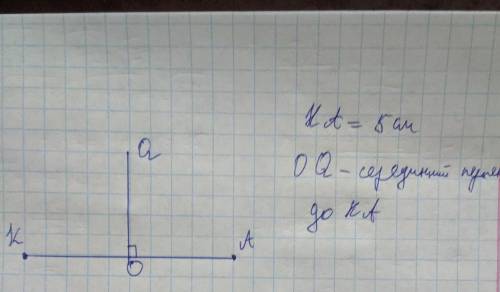 KA = 5 см
OQ - серединний перпен
до KA
Q
K
A
O